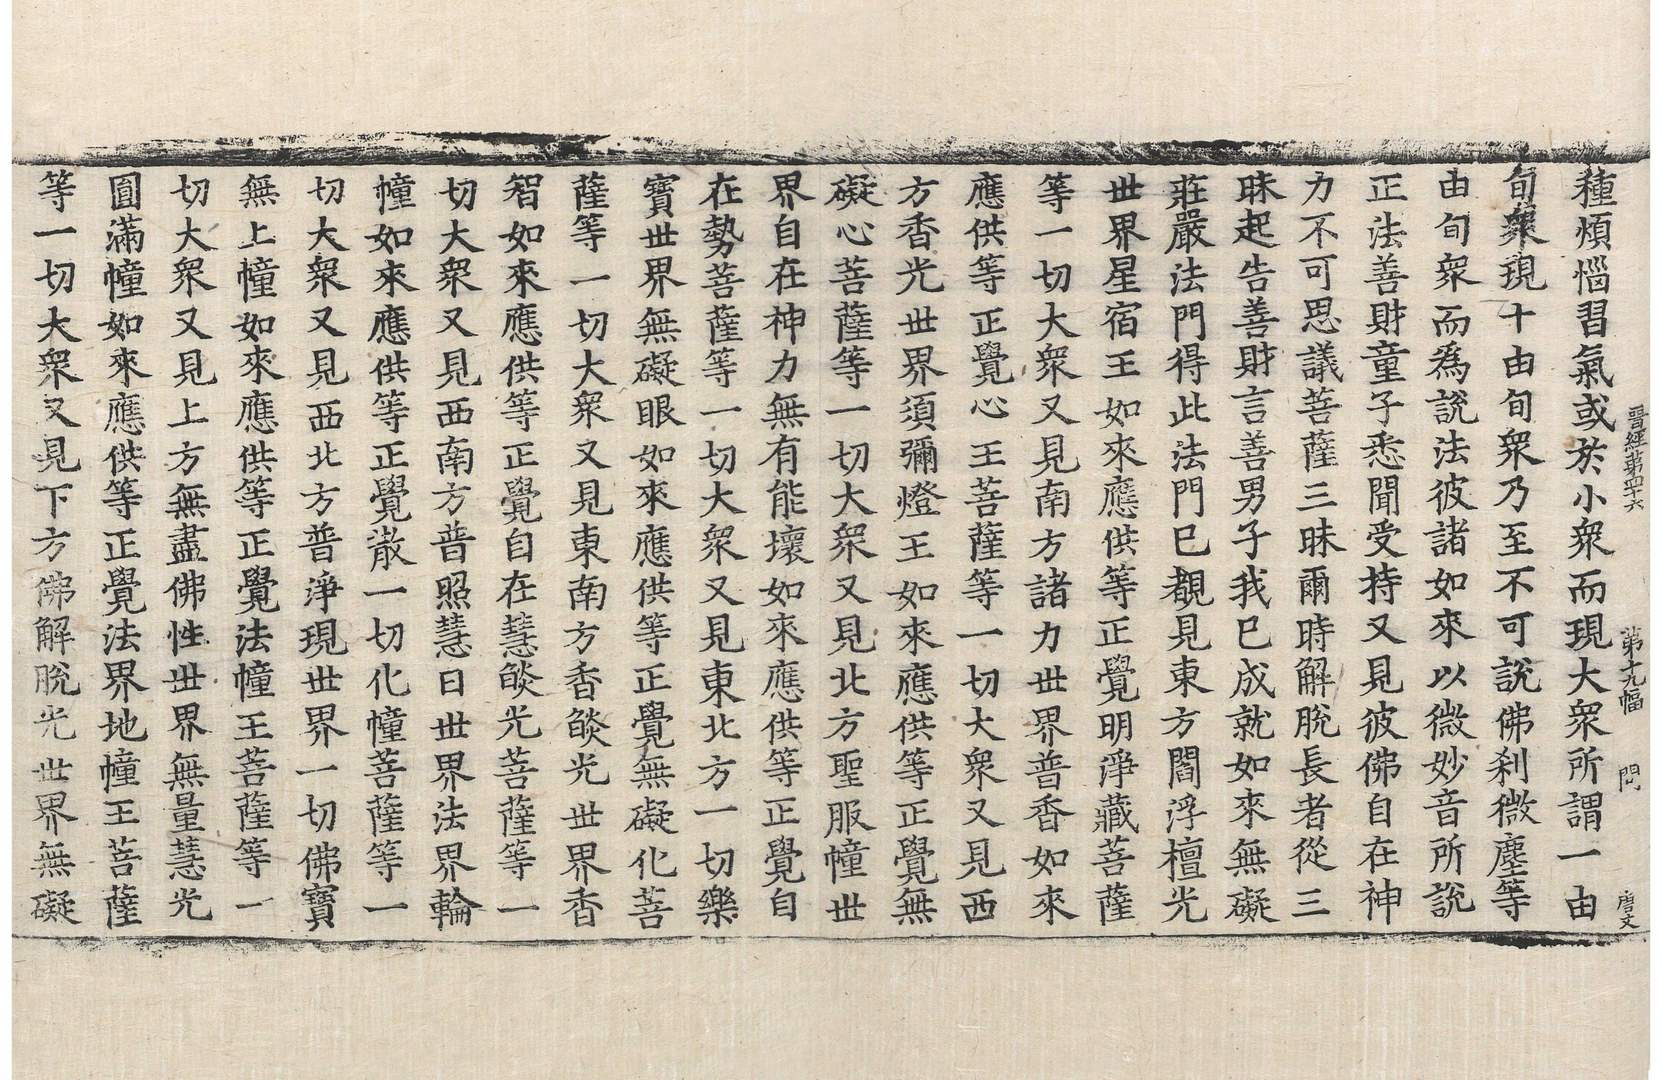 晋經第四十六　第十九幅　問　唐文
種煩惱習氣或於小衆而現大衆所謂一由
旬衆現十由旬衆乃至不可說佛刹微塵等
由旬衆而為說法彼諸如來以微妙音所說
正法善財童子悉聞受持又見彼佛自在神
力不可思議菩薩三昧爾時解脫長者從三
昧起告善財言善男子我已成就如來無礙
莊嚴法門得此法門已覩見東方閻浮檀光
世界星宿王如來應供等正覺明淨藏菩薩
等一切大衆又見南方諸力世界普香如來
應供等正覺心王菩薩等一切大衆又見西
方香光世界須彌燈王如來應供等正覺無
礙心菩薩等一切大衆又見北方聖服幢世
界自在神力無有能壞如來應供等正覺自
在勢菩薩等一切大衆又見東北方一切樂
寶世界無礙眼如來應供等正覺無礙化菩
薩等一切大衆又見東南方香𦦨光世界香
智如來應供等正覺自在慧𦦨光菩薩等一
切大衆又見西南方普照慧日世界法界輪
幢如來應供等正覺散一切化幢菩薩等一
切大衆又見西北方普淨現世界一切佛寶
無上幢如來應供等正覺法幢王菩薩等一
切大衆又見上方無盡佛性世界無量慧光
圓滿幢如來應供等正覺法界地幢王菩薩
等一切大衆又見下方佛解脫光世界無礙